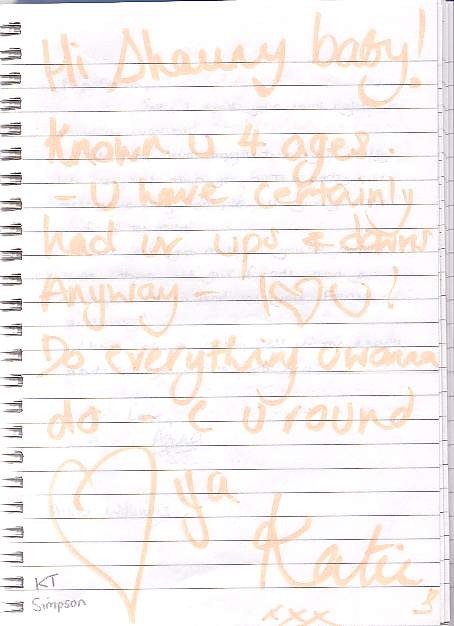 Hi Shauny baby!
Known u 4 ages.
- U have certainly
had ur ups & downs
Anyway - I ♡ U!
Do everything u wanna
do - C U round
♡ ya
Katie
xxx
KT
Simpson